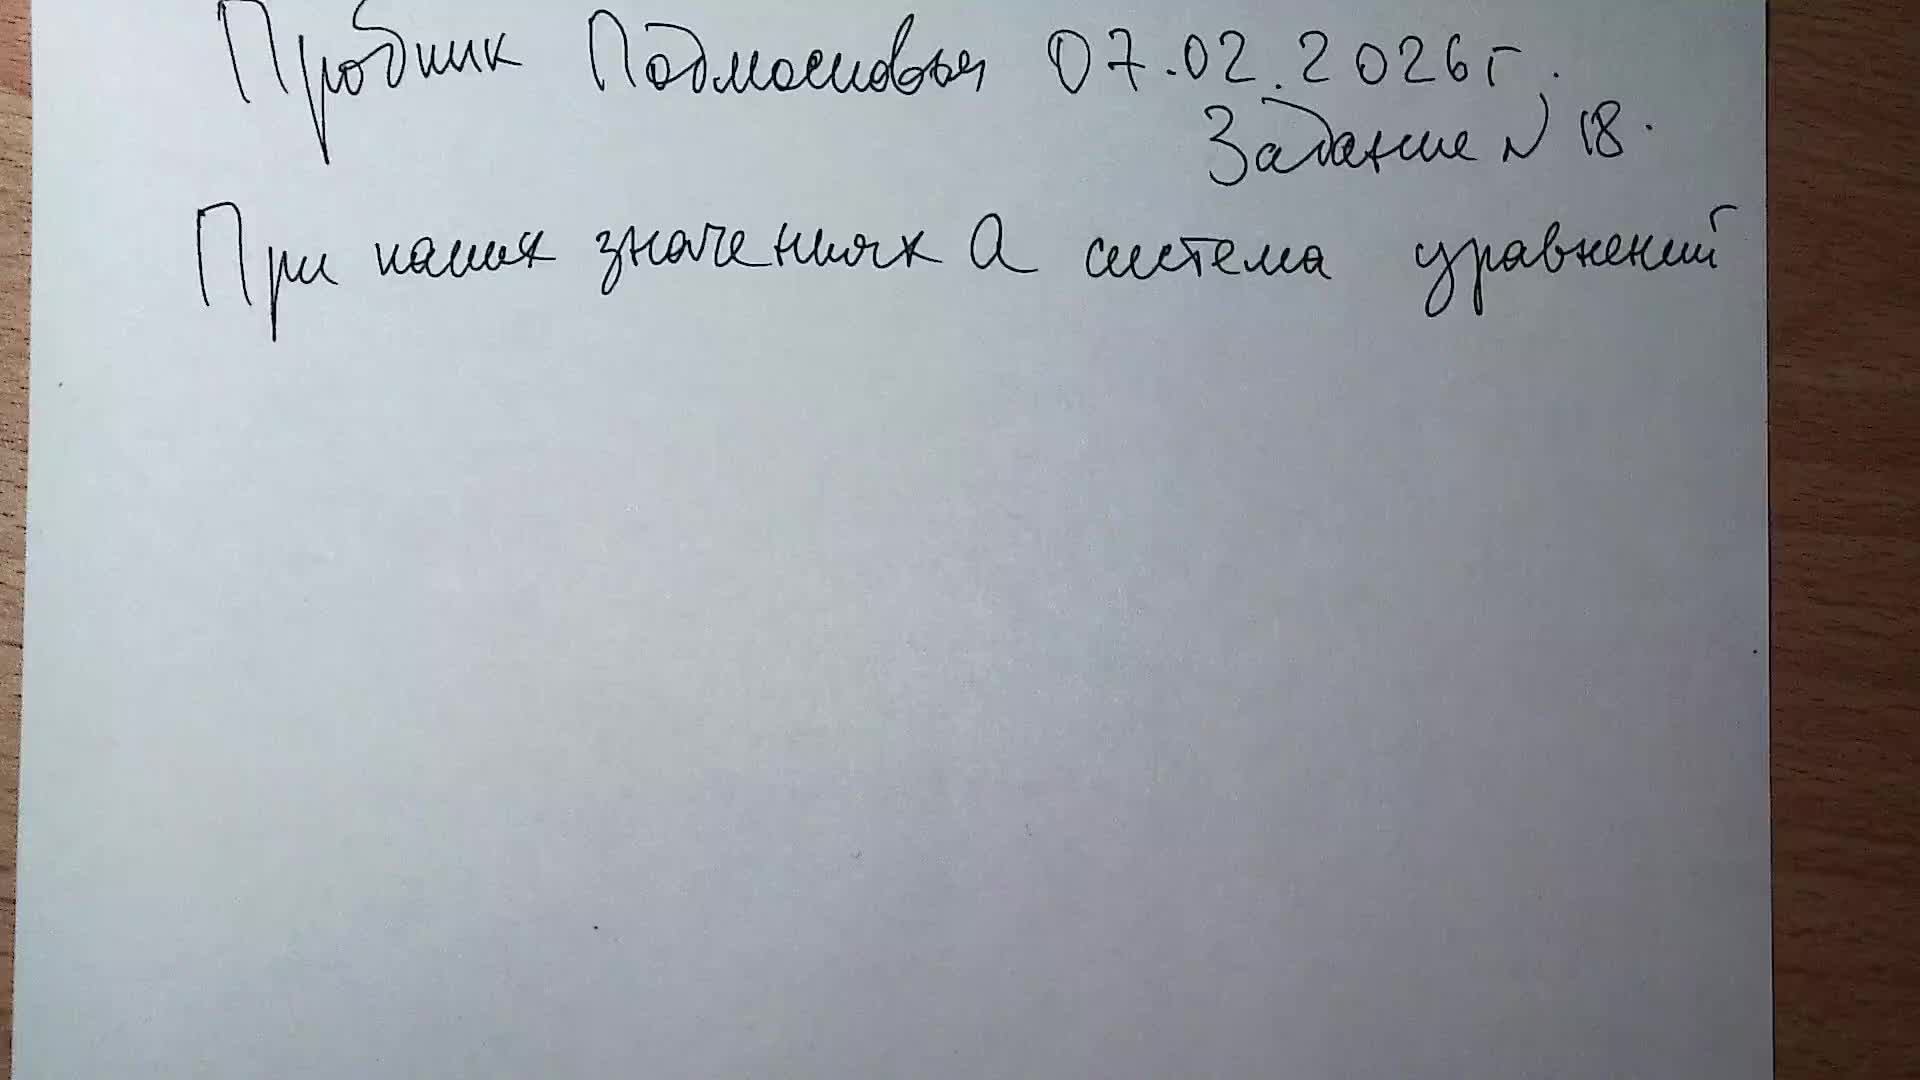 Пробник Подмосковья 07.02.2026г.
Задание N 18.
При каких значениях а система уравнений